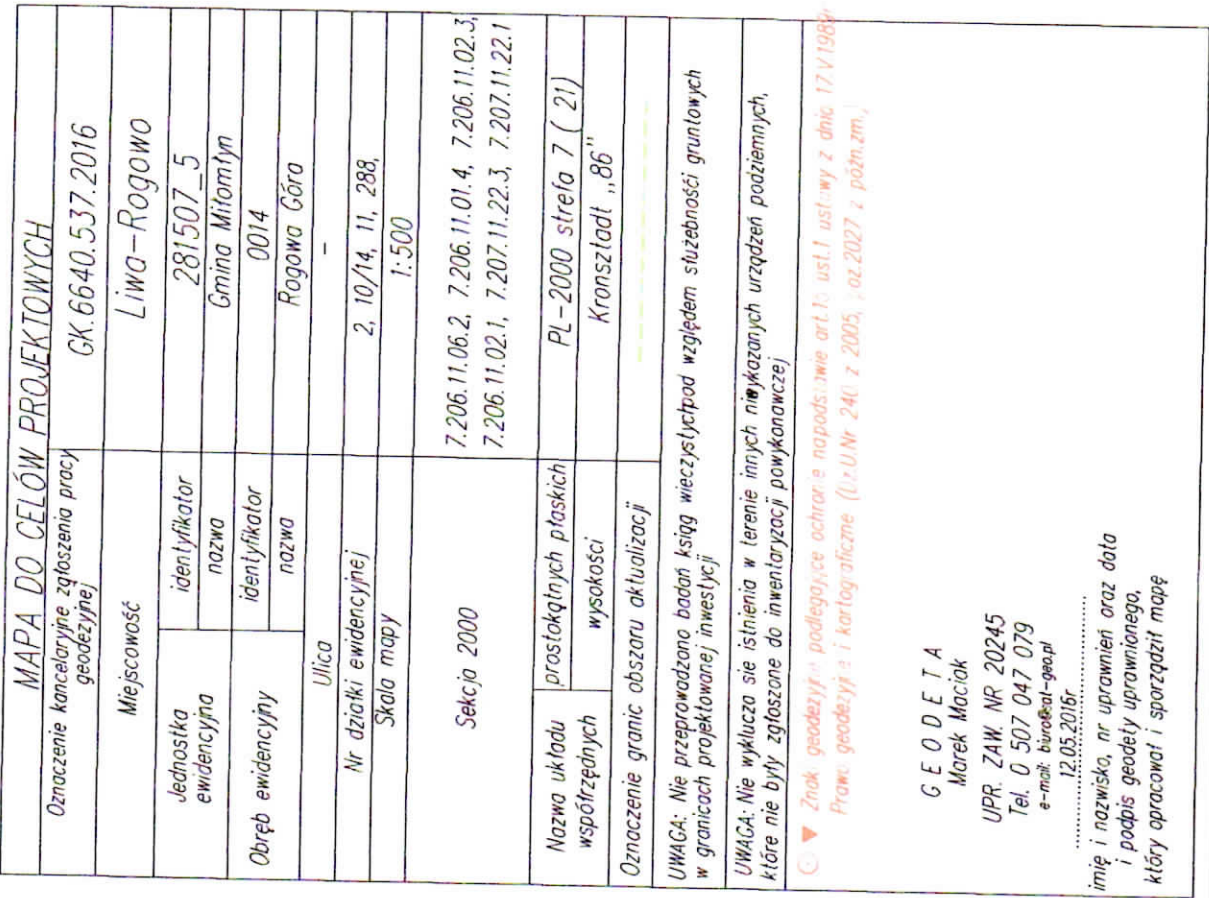 MAPA DO CELÓW PROJEKTOWYCH
Oznaczenie kancelaryjne zgłoszenia pracy geodezyjnej GK.6640.537.2016
Miejscowość Liwa-Rogowo
Jednostka ewidencyjna identyfikator 281507_5
nazwa Gmina Miłomłyn
Obręb ewidencyjny identyfikator 0014
nazwa Rogowa Góra
Ulica -
Nr działki ewidencyjnej 2, 10/14, 11, 288,
Skala mapy 1:500
Sekcja 2000 7.206.11.06.2, 7.206.11.01.4, 7.206.11.02.3,
7.206.11.02.1, 7.207.11.22.3, 7.207.11.22.1
Nazwa układu współrzędnych prostokątnych płaskich PL-2000 strefa 7 ( 21)
wysokości Kronsztadt ,,86"
Oznaczenie granic obszaru aktualizacji
UWAGA: Nie przeprowadzono badań ksiąg wieczystychpod względem służebnośći gruntowych
w granicach projektowanej inwestycji
UWAGA: Nie wyklucza sie istnienia w terenie innych niewykazanych urządzeń podziemnych,
które nie były zgłoszone do inwentaryzacji powykonawczej
Znaki geodezyjne podlegające ochronie napodstawie art.15 ust.1 ustawy z dnia 17.V1989
Prawo geodezyjne i kartograficzne (Dz.U.Nr 240 z 2005, poz.2027 z późn.zm.,)
G E O D E T A
Marek Maciak
UPR. ZAW. NR 20245
Tel. 0 507 047 079
e-mail: biuro@at-geo.pl
12.05.2016r
imię i nazwisko, nr uprawnień oraz data
i podpis geodety uprawnionego,
który opracował i sporządził mapę